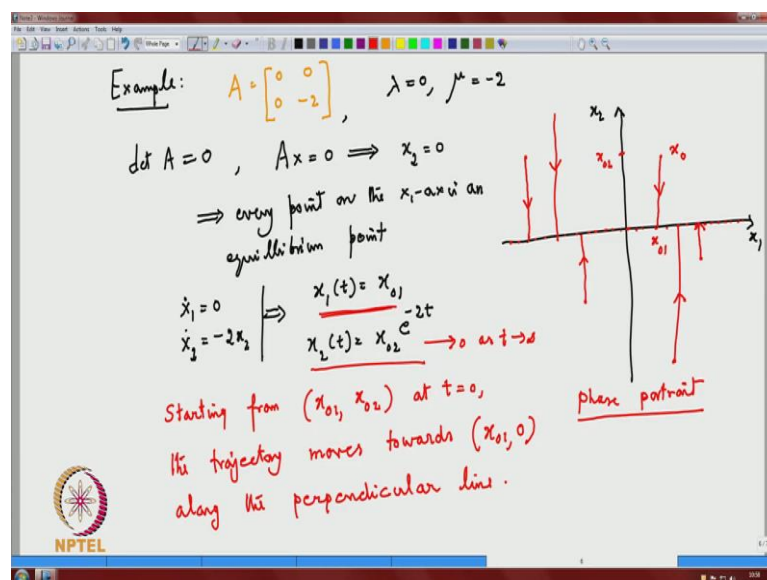 Note3 - Windows Journal
File Edit View Insert Actions Tools Help
Whole Page
Example: A = [0 0
0 -2], λ=0, μ=-2
det A = 0, Ax=0 ⟹ x₂=0
⟹ every point on the x₁-axis is an
equilibrium point
ẋ₁=0 ⟹ x₁(t)= x₀₁
ẋ₂=-2x₂ x₂(t)= x₀₂ e^{-2t} → 0 as t→∞
Starting from (x₀₁, x₀₂) at t=0,
the trajectory moves towards (x₀₁, 0)
along the perpendicular line.
x₂
x₀₂
x₀
x₀₁
x₁
phase portrait
NPTEL